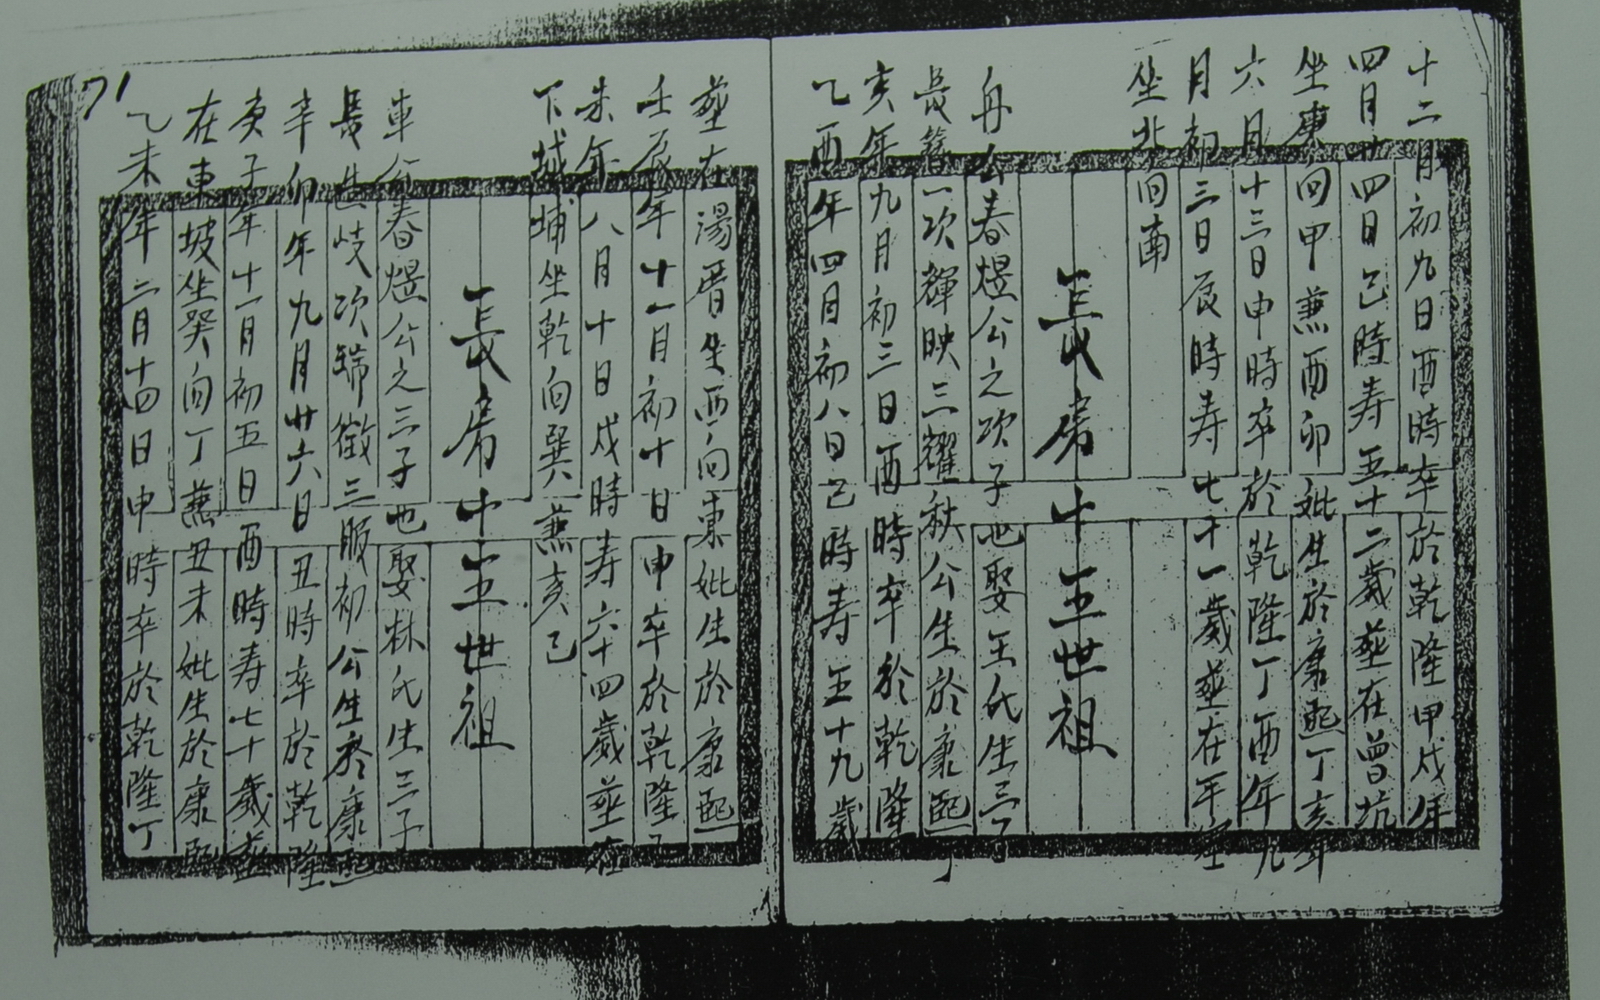 十二月初九日酉時卒於乾隆甲戌年
四月廿四日己時寿五十二歲葬在曾坑
坐庚向甲兼酉卯妣生於康熙丁亥年
六月十三日申時卒於乾隆丁酉年九
月初三日辰時寿七十一歲葬在
坐北向南
長房十五世祖
舟公春煜公之次子也娶王氏生三子
長簪一次輝映三耀秋公生於康熙丁
亥年九月初三日酉時卒於乾隆
乙酉年四月初八日己時寿五十九歲
葬在湯厝坐西向東妣生於康熙
壬辰年十一月初十日申卒於乾隆
未年八月十日戌時寿六十四歲葬在
下埔坐乾向巽兼亥己
長房十五世祖
車公春煜公之三子也娶林氏生三子
長岐次瑞徵三服初公生於康熙
辛卯年九月廿六日丑時卒於乾隆
庚子年十一月初五日酉時寿七十歲葬
在東坡坐癸向丁兼丑未妣生於康熙
乙未年二月十四日申時卒於乾隆丁
71